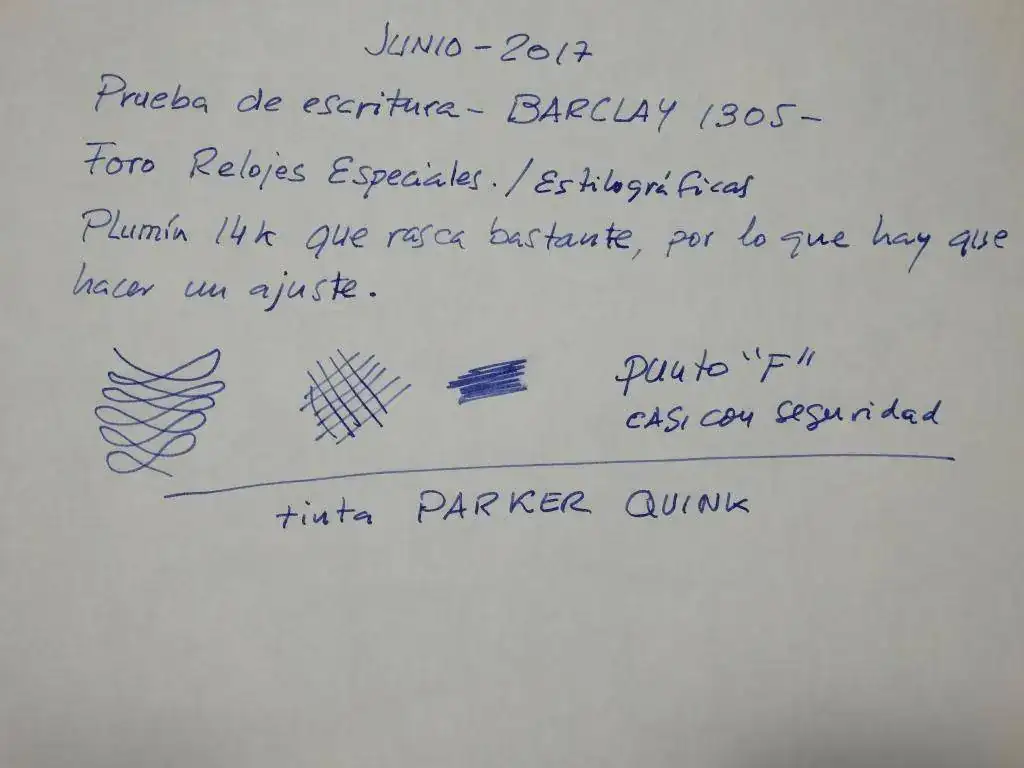 JUNIO - 2017
Prueba de escritura - BARCLAY 1305 -
Foro Relojes Especiales. / Estilográficas
Plumín 14k que rasca bastante, por lo que hay que
hacer un ajuste.
punto "F"
CASI con seguridad
tinta PARKER QUINK